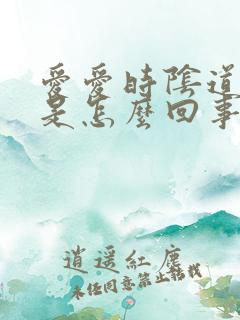 愛愛時陰道
是怎麼回事
逍遥紅塵
未经同意禁止转载